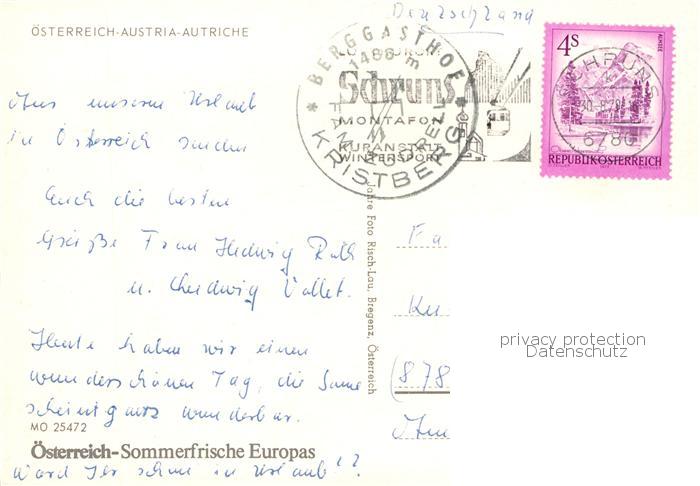 ÖSTERREICH-AUSTRIA-AUTRICHE
Deutschland
Aus unserem Urlaub
in Österreich senden
Euch die besten
Grüße Frau Hedwig Roth
u. Vallet.
Heute haben wir einen
wunderschönen Tag, die Sonne
scheint ganz wunderbar.
MO 25472
Österreich-Sommerfrische Europas
Ward Ihr schon in Urlaub??
BERGGASTHOF
1486 m
KRISTBERG
LUFTKURORT
Schruns
MONTAFON
KURANSTALT
WINTERSPORT
4S
ALMSEE
REPUBLIK ÖSTERREICH
SCHRUNS
6780
Jahre Foto Risch-Lau, Bregenz, Österreich
Fa
(878
privacy protection
Datenschutz